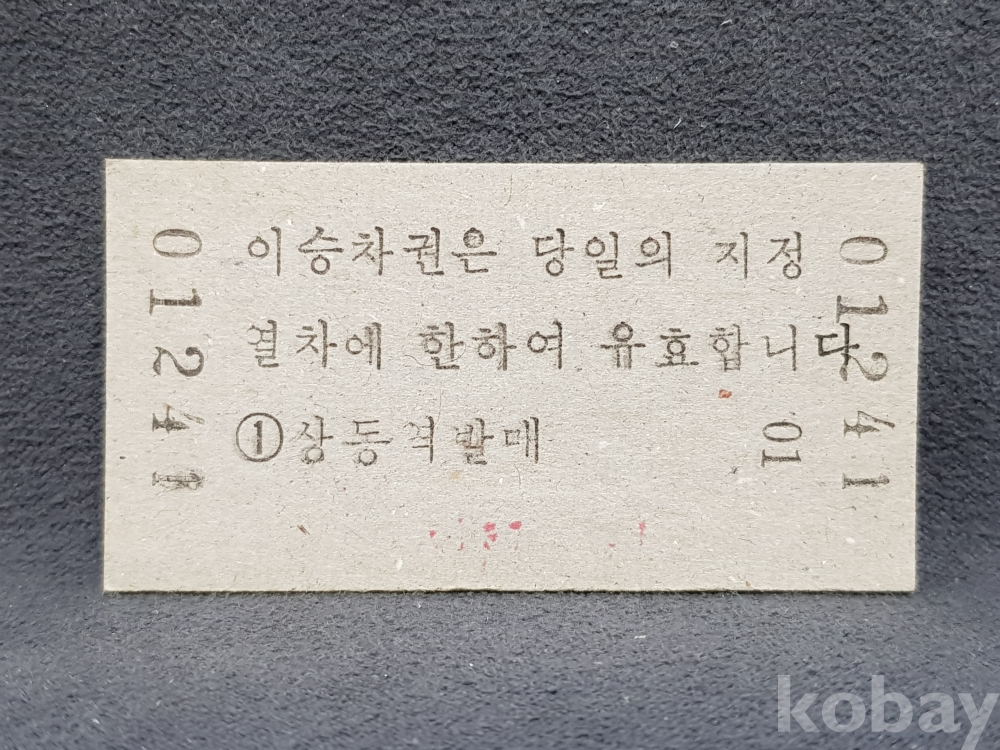 01241
이승차권은 당일의 지정
열차에 한하여 유효합니다
①상동역발매
01
01241
kobay